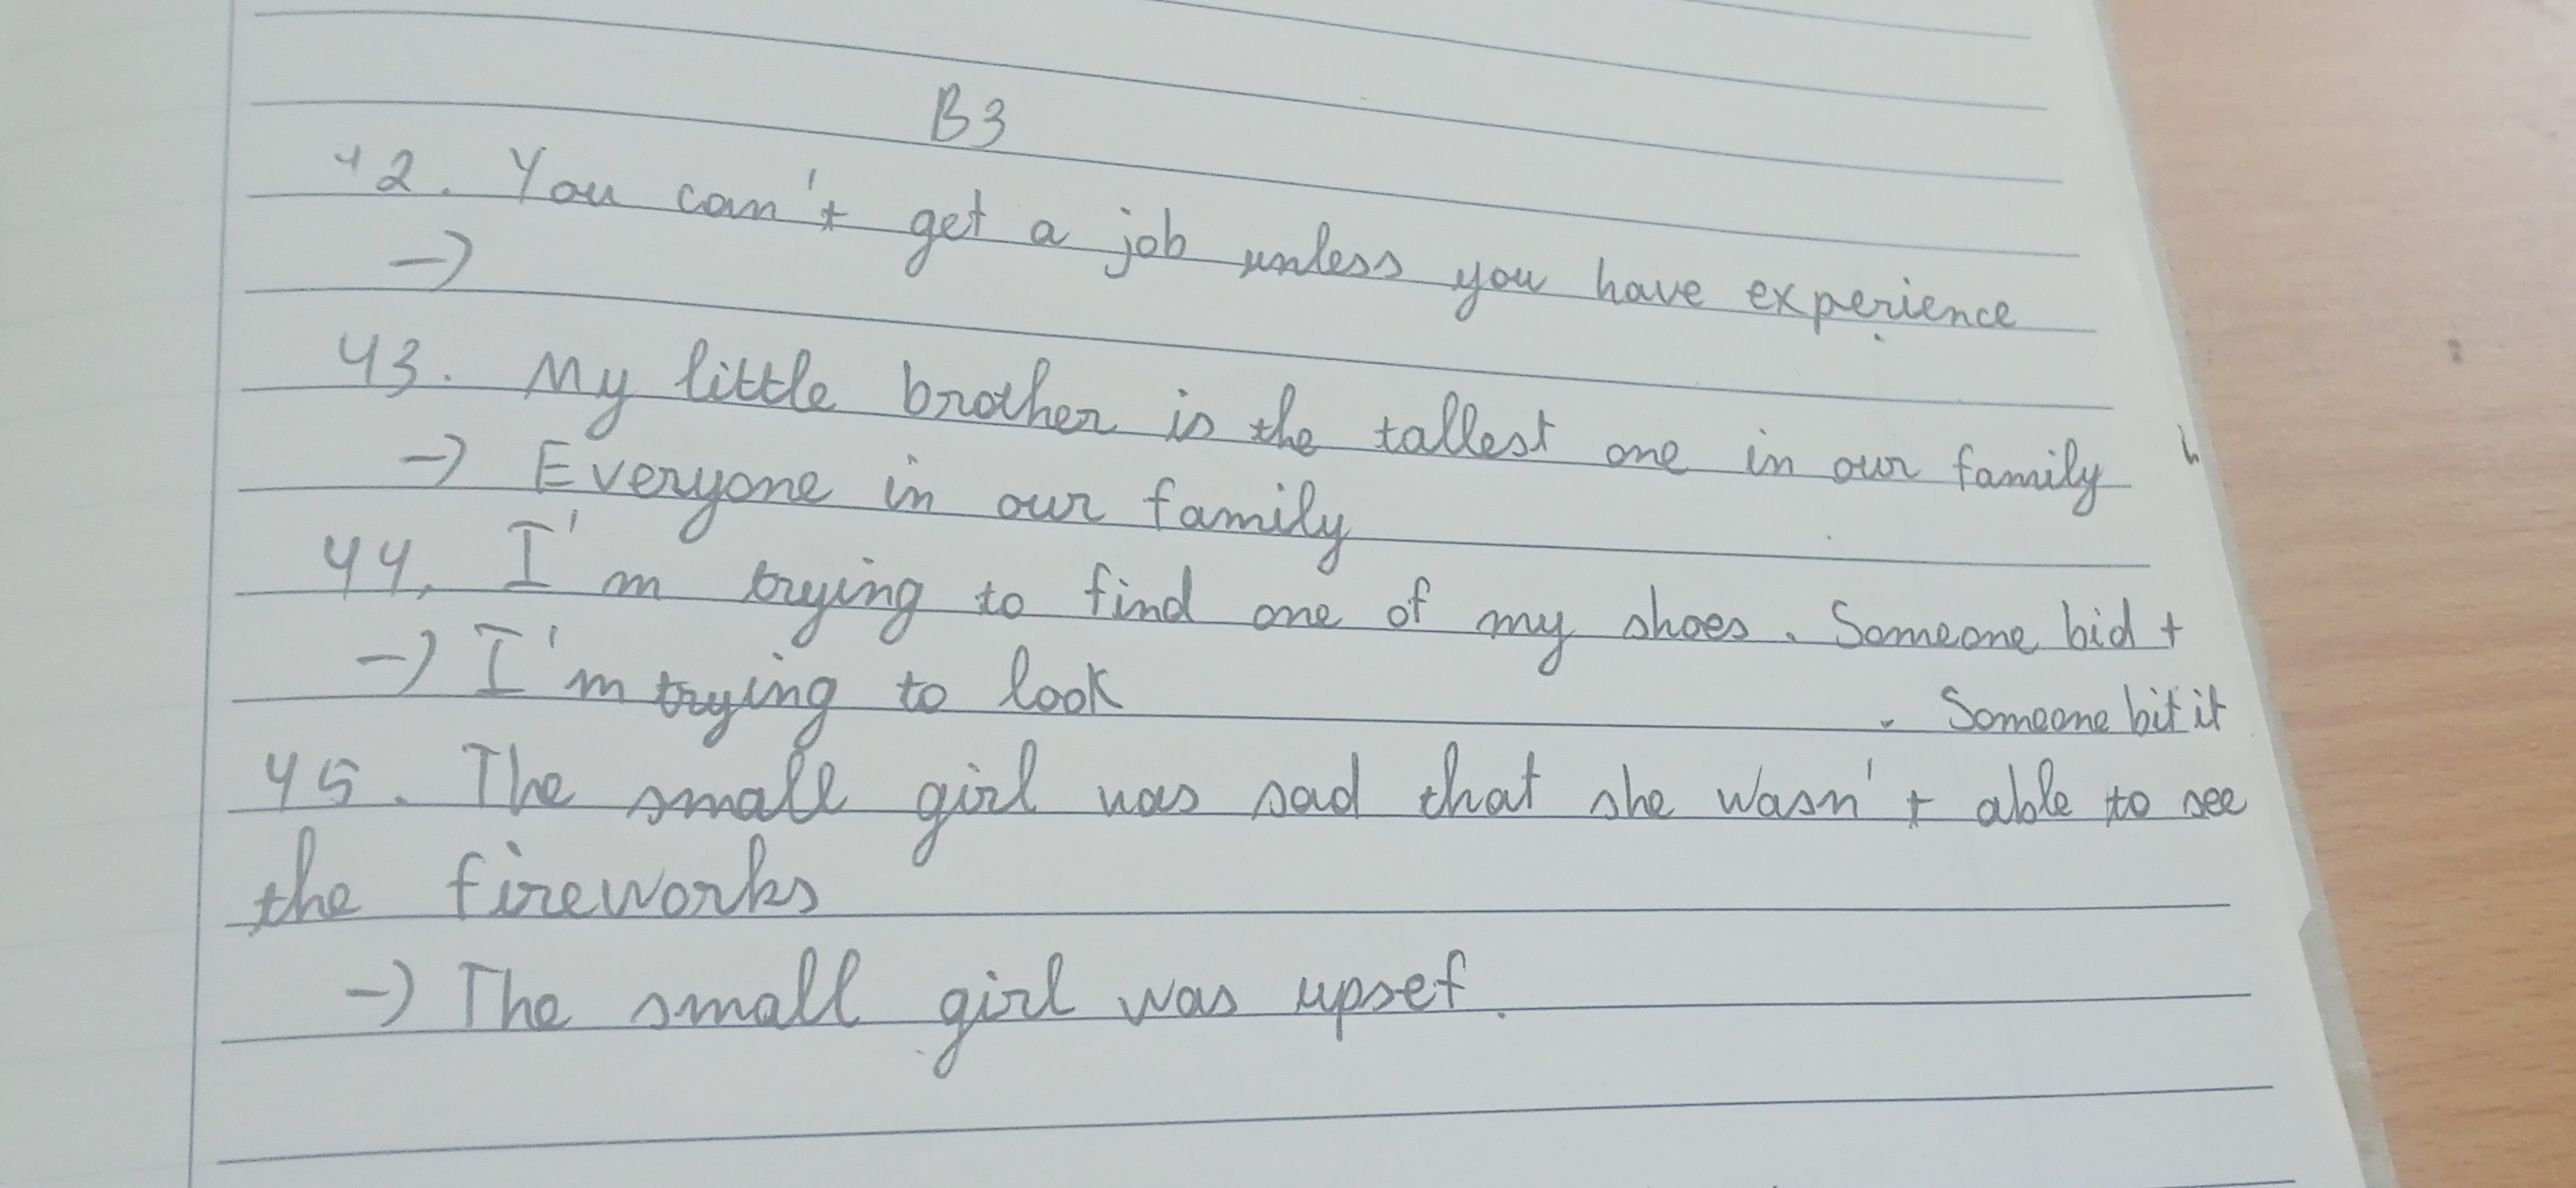 B3
42. You can't get a job unless you have experience
→
43. My little brother is the tallest one in our family
→ Everyone in our family
44. I'm trying to find one of my shoes. Someone bid t
→ I'm trying to look . Someone bit it
45. The small girl was sad that she wasn't able to see
the fireworks
→ The small girl was upset.